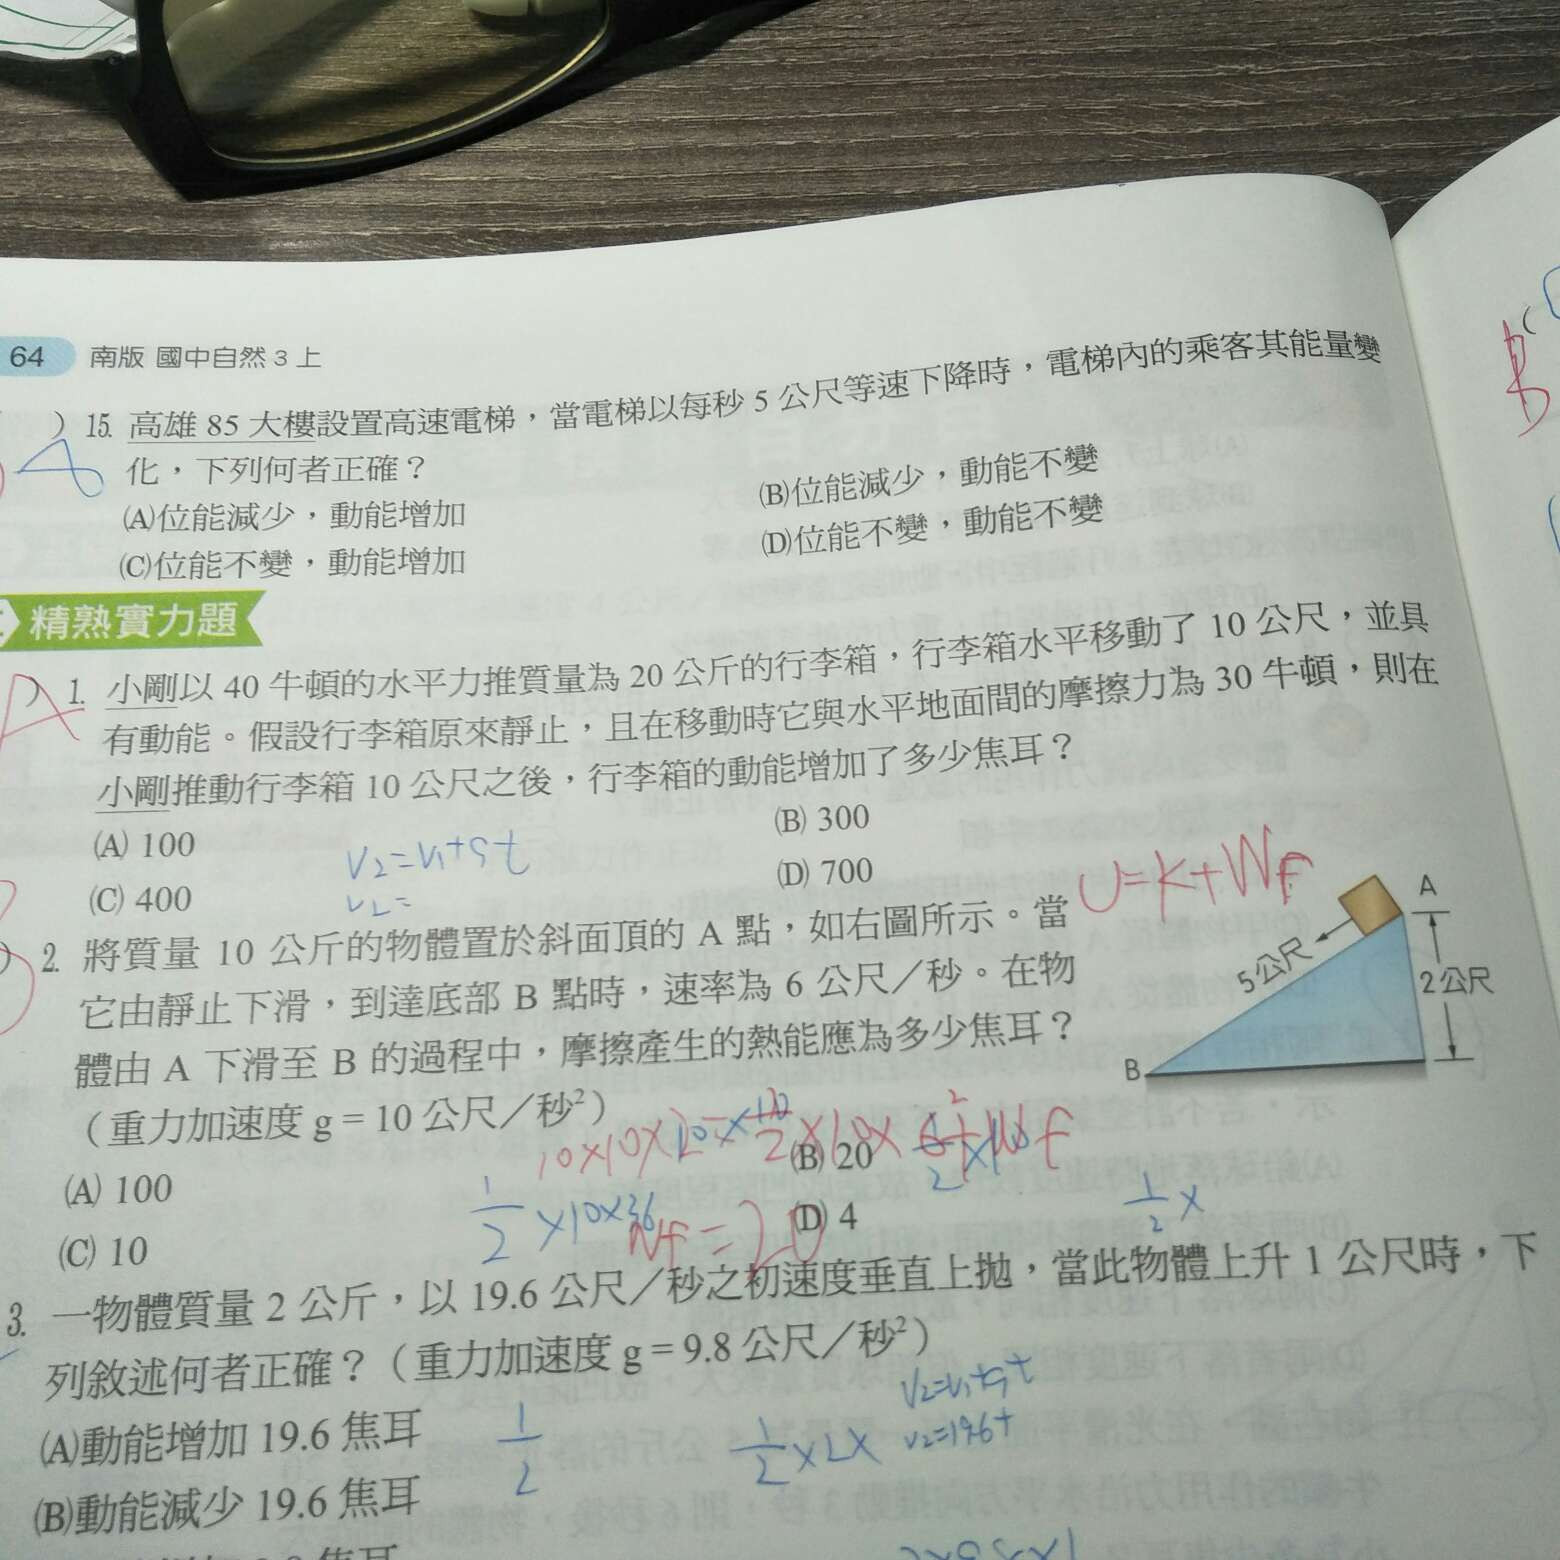 64 南版 國中自然 3 上
) 15. 高雄 85 大樓設置高速電梯，當電梯以每秒 5 公尺等速下降時，電梯內的乘客其能量變
化，下列何者正確？
(A)位能減少，動能增加
(B)位能減少，動能不變
(C)位能不變，動能增加
(D)位能不變，動能不變
精熟實力題
A ) 1. 小剛以 40 牛頓的水平力推質量為 20 公斤的行李箱，行李箱水平移動了 10 公尺，並具
有動能。假設行李箱原來靜止，且在移動時它與水平地面間的摩擦力為 30 牛頓，則在
小剛推動行李箱 10 公尺之後，行李箱的動能增加了多少焦耳？
(A) 100
(B) 300
(C) 400
(D) 700
V2=V1+gt
V2=
U=K+WF
) 2. 將質量 10 公斤的物體置於斜面頂的 A 點，如右圖所示。當
它由靜止下滑，到達底部 B 點時，速率為 6 公尺／秒。在物
體由 A 下滑至 B 的過程中，摩擦產生的熱能應為多少焦耳？
（重力加速度 g = 10 公尺／秒²）
A
5 公尺
2 公尺
B
(A) 100
(B) 20
(C) 10
(D) 4
1/2 ×10×36
Wf=20
1/2 ×
3. 一物體質量 2 公斤，以 19.6 公尺／秒之初速度垂直上拋，當此物體上升 1 公尺時，下
列敘述何者正確？（重力加速度 g = 9.8 公尺／秒²）
(A)動能增加 19.6 焦耳
(B)動能減少 19.6 焦耳
1/2
1/2 ×2×
V2=V1+gt
V2=19.6+